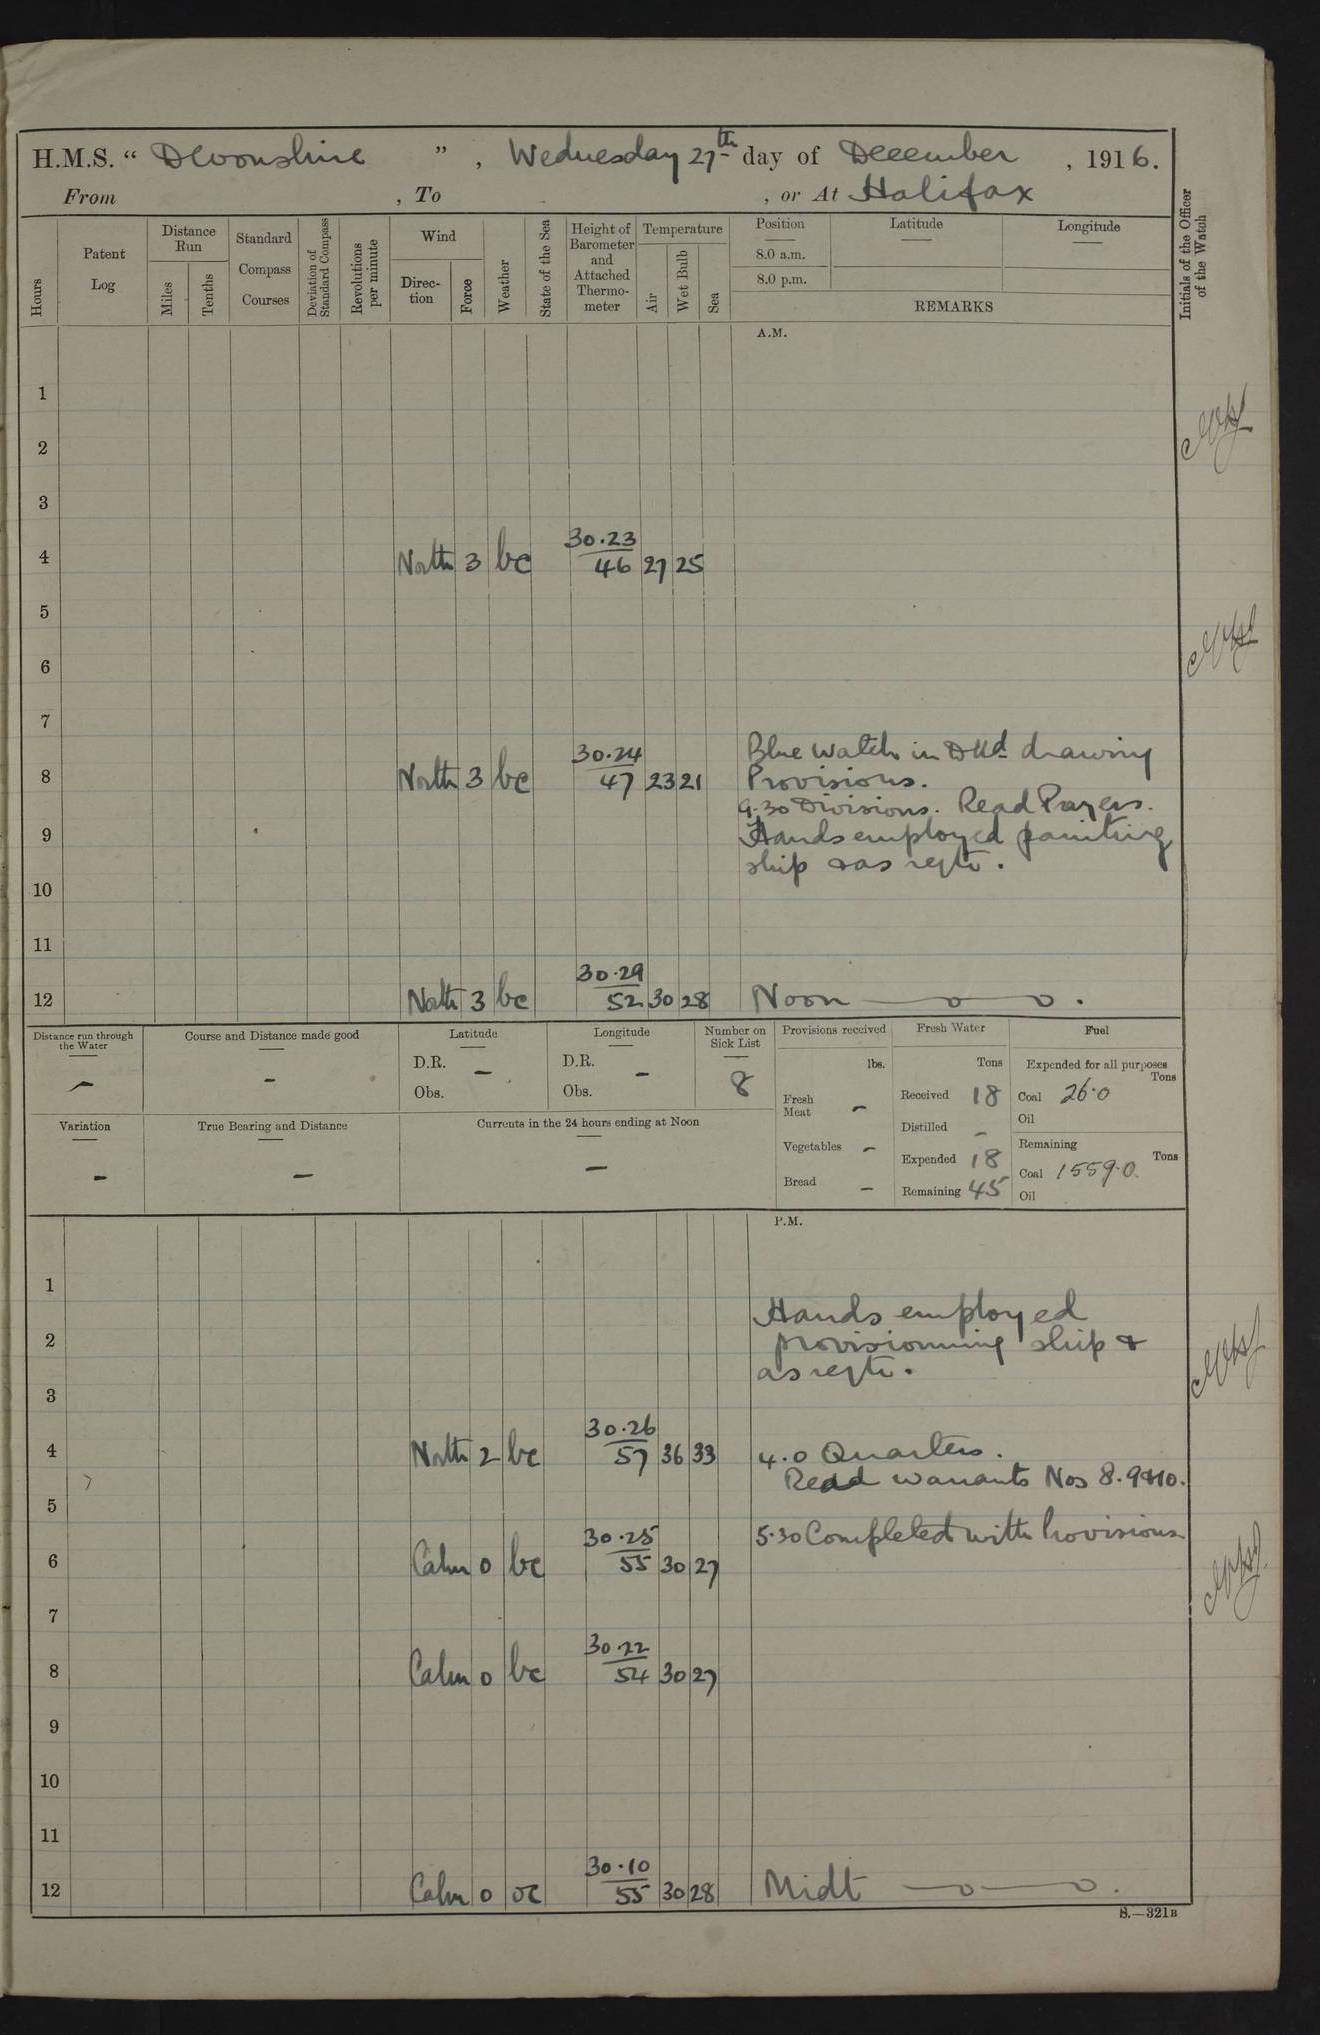 H.M.S. “ Devonshire ” , Wednesday 27th day of December , 1916.
From , To , or At Halifax
Hours
Patent Log
Distance Run
Miles
Tenths
Standard Compass Courses
Deviation of Standard Compass
Revolutions per minute
Wind
Direction
Force
Weather
State of the Sea
Height of Barometer and Attached Thermometer
Temperature
Air
Wet Bulb
Sea
Position
8.0 a.m.
8.0 p.m.
Latitude
Longitude
REMARKS
Initials of the Officer of the Watch
A.M.
1
2
3
30.23
4 North 3 bc 46 27 25
5
6
7
Blue Watch in Dkyd drawing
30.24
8 North 3 bc 47 23 21 Provisions.
9.30 Divisions. Read Prayers.
9 Hands employed painting
ship & as reqte.
10
11
30.29
12 North 3 bc 52 30 28 Noon —o—o.
Distance run through the Water –
Course and Distance made good –
Latitude
D.R. –
Obs.
Longitude
D.R. –
Obs.
Number on Sick List
8
Provisions received
lbs.
Fresh Meat –
Vegetables –
Bread –
Fresh Water
Tons
Received 18
Distilled –
Expended 18
Remaining 45
Fuel
Expended for all purposes
Tons
Coal 26.0
Oil
Remaining
Tons
Coal 1559.0.
Oil
Variation –
True Bearing and Distance –
Currents in the 24 hours ending at Noon –
P.M.
1
Hands employed
2 provisionning ship &
as reqte.
3
30.26
4 North 2 bc 57 36 33 4.0 Quarters.
Read warrants Nos 8.9&10.
5
30.25 5.30 Completed with Provisions
6 Calm 0 bc 55 30 27
7
30.22
8 Calm 0 bc 54 30 27
9
10
11
30.10
12 Calm 0 oc 55 30 28 Midt —o—o.
S.—321B